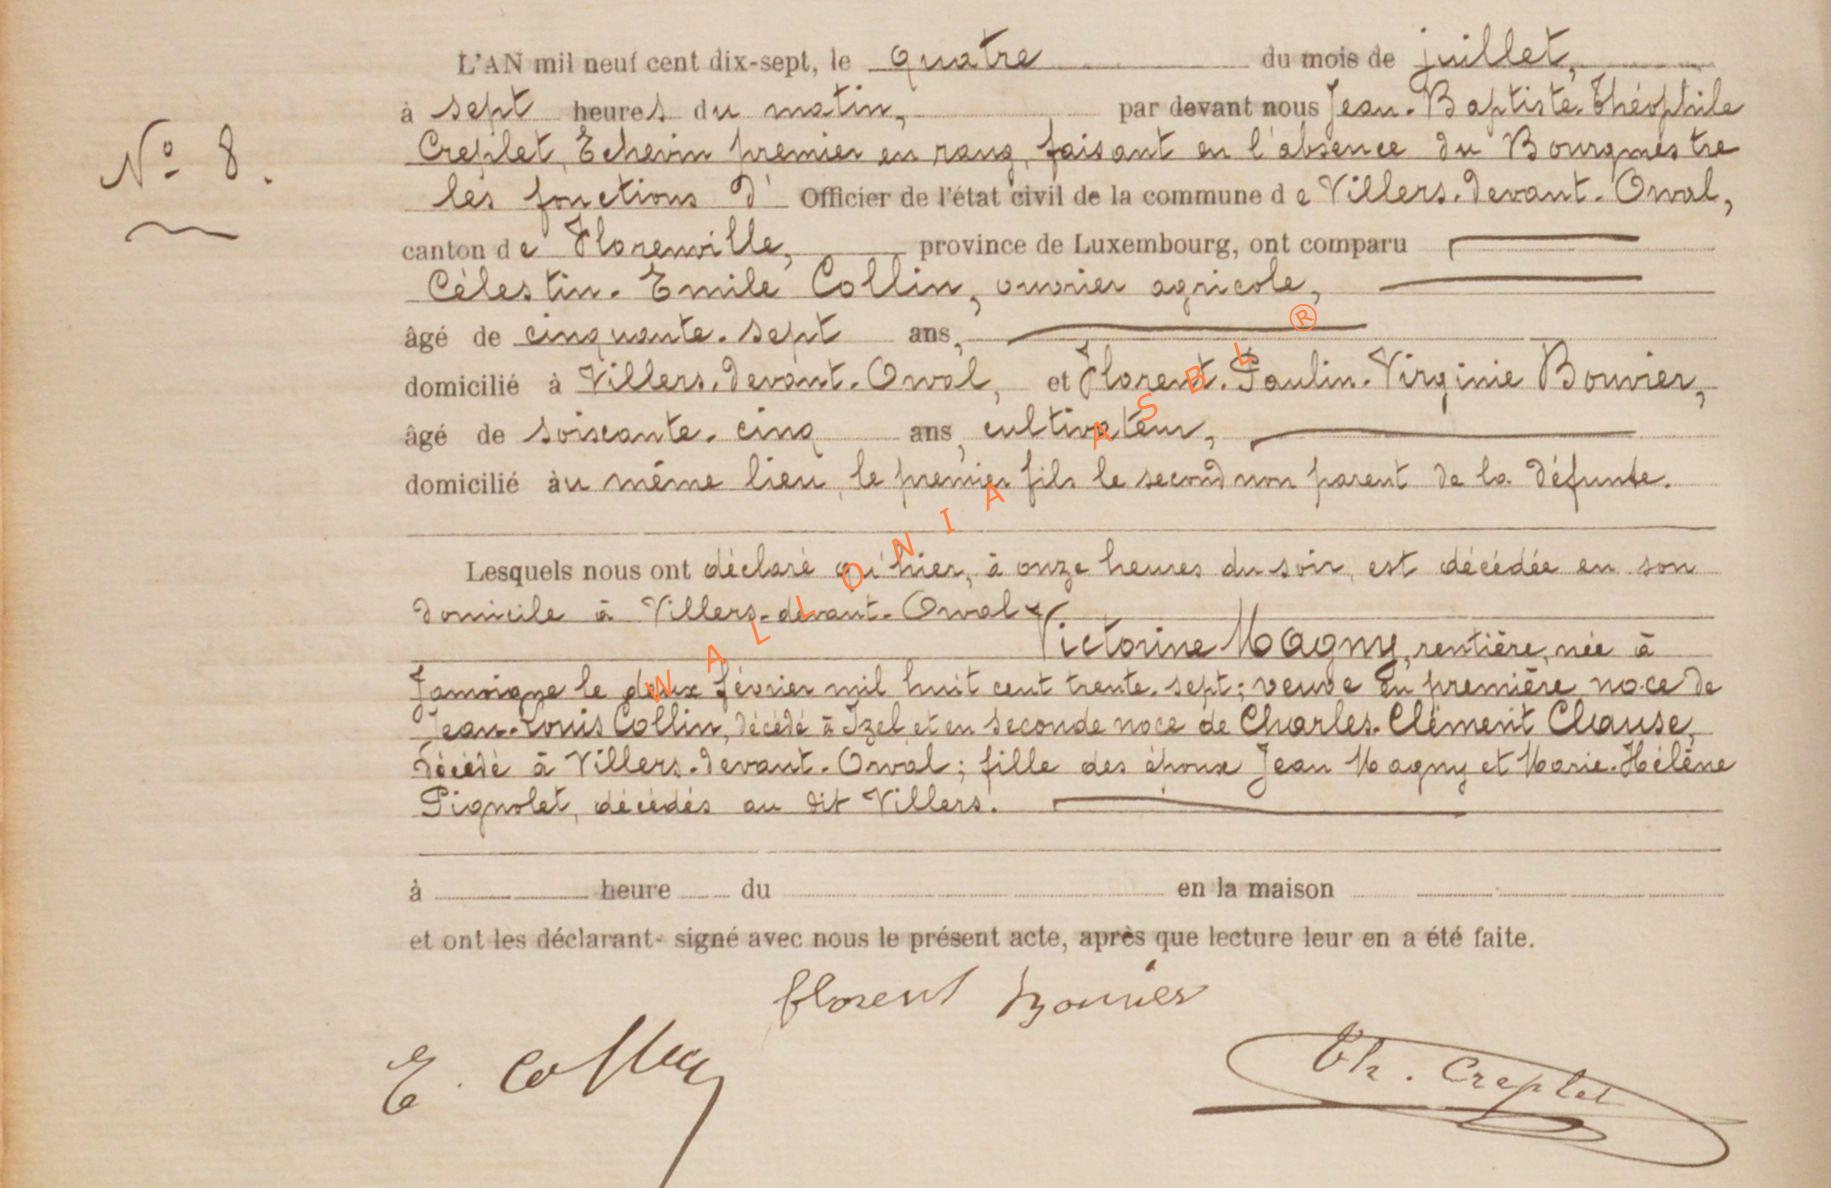 L'AN mil neuf cent dix-sept, le quatre du mois de juillet,
à sept heures du matin, par devant nous Jean-Baptiste-Théophile
N° 8.
Creplet, Echevin premier en rang, faisant en l'absence du Bourgmestre
les fonctions d' Officier de l'état civil de la commune de Villers-devant-Orval,
canton de Florenville, province de Luxembourg, ont comparu
Célestin-Emile Collin, ouvrier agricole,
âgé de cinquante-sept ans,
domicilié à Villers-devant-Orval, et Florent-Paulin-Virginie Bouvier,
âgé de soixante-cinq ans, cultivateur,
domicilié au même lieu, le premier fils le second non parent de la défunte.
Lesquels nous ont déclaré qu'hier, à onze heures du soir, est décédée en son
domicile à Villers-devant-Orval
Victorine Magny, rentière, née à
Jamoigne le deux février mil huit cent trente-sept; veuve en première noce de
Jean-Louis Collin, décédé à Izel et en seconde noce de Charles-Clément Clause,
décédé à Villers-devant-Orval; fille des époux Jean Magny et Marie-Hélène
Pignolet, décédés au dit Villers.
à heure du en la maison
et ont les déclarant- signé avec nous le présent acte, après que lecture leur en a été faite.
florent bouvier
E. Collin
Th. Creplet
WALLONIA ASBL ®